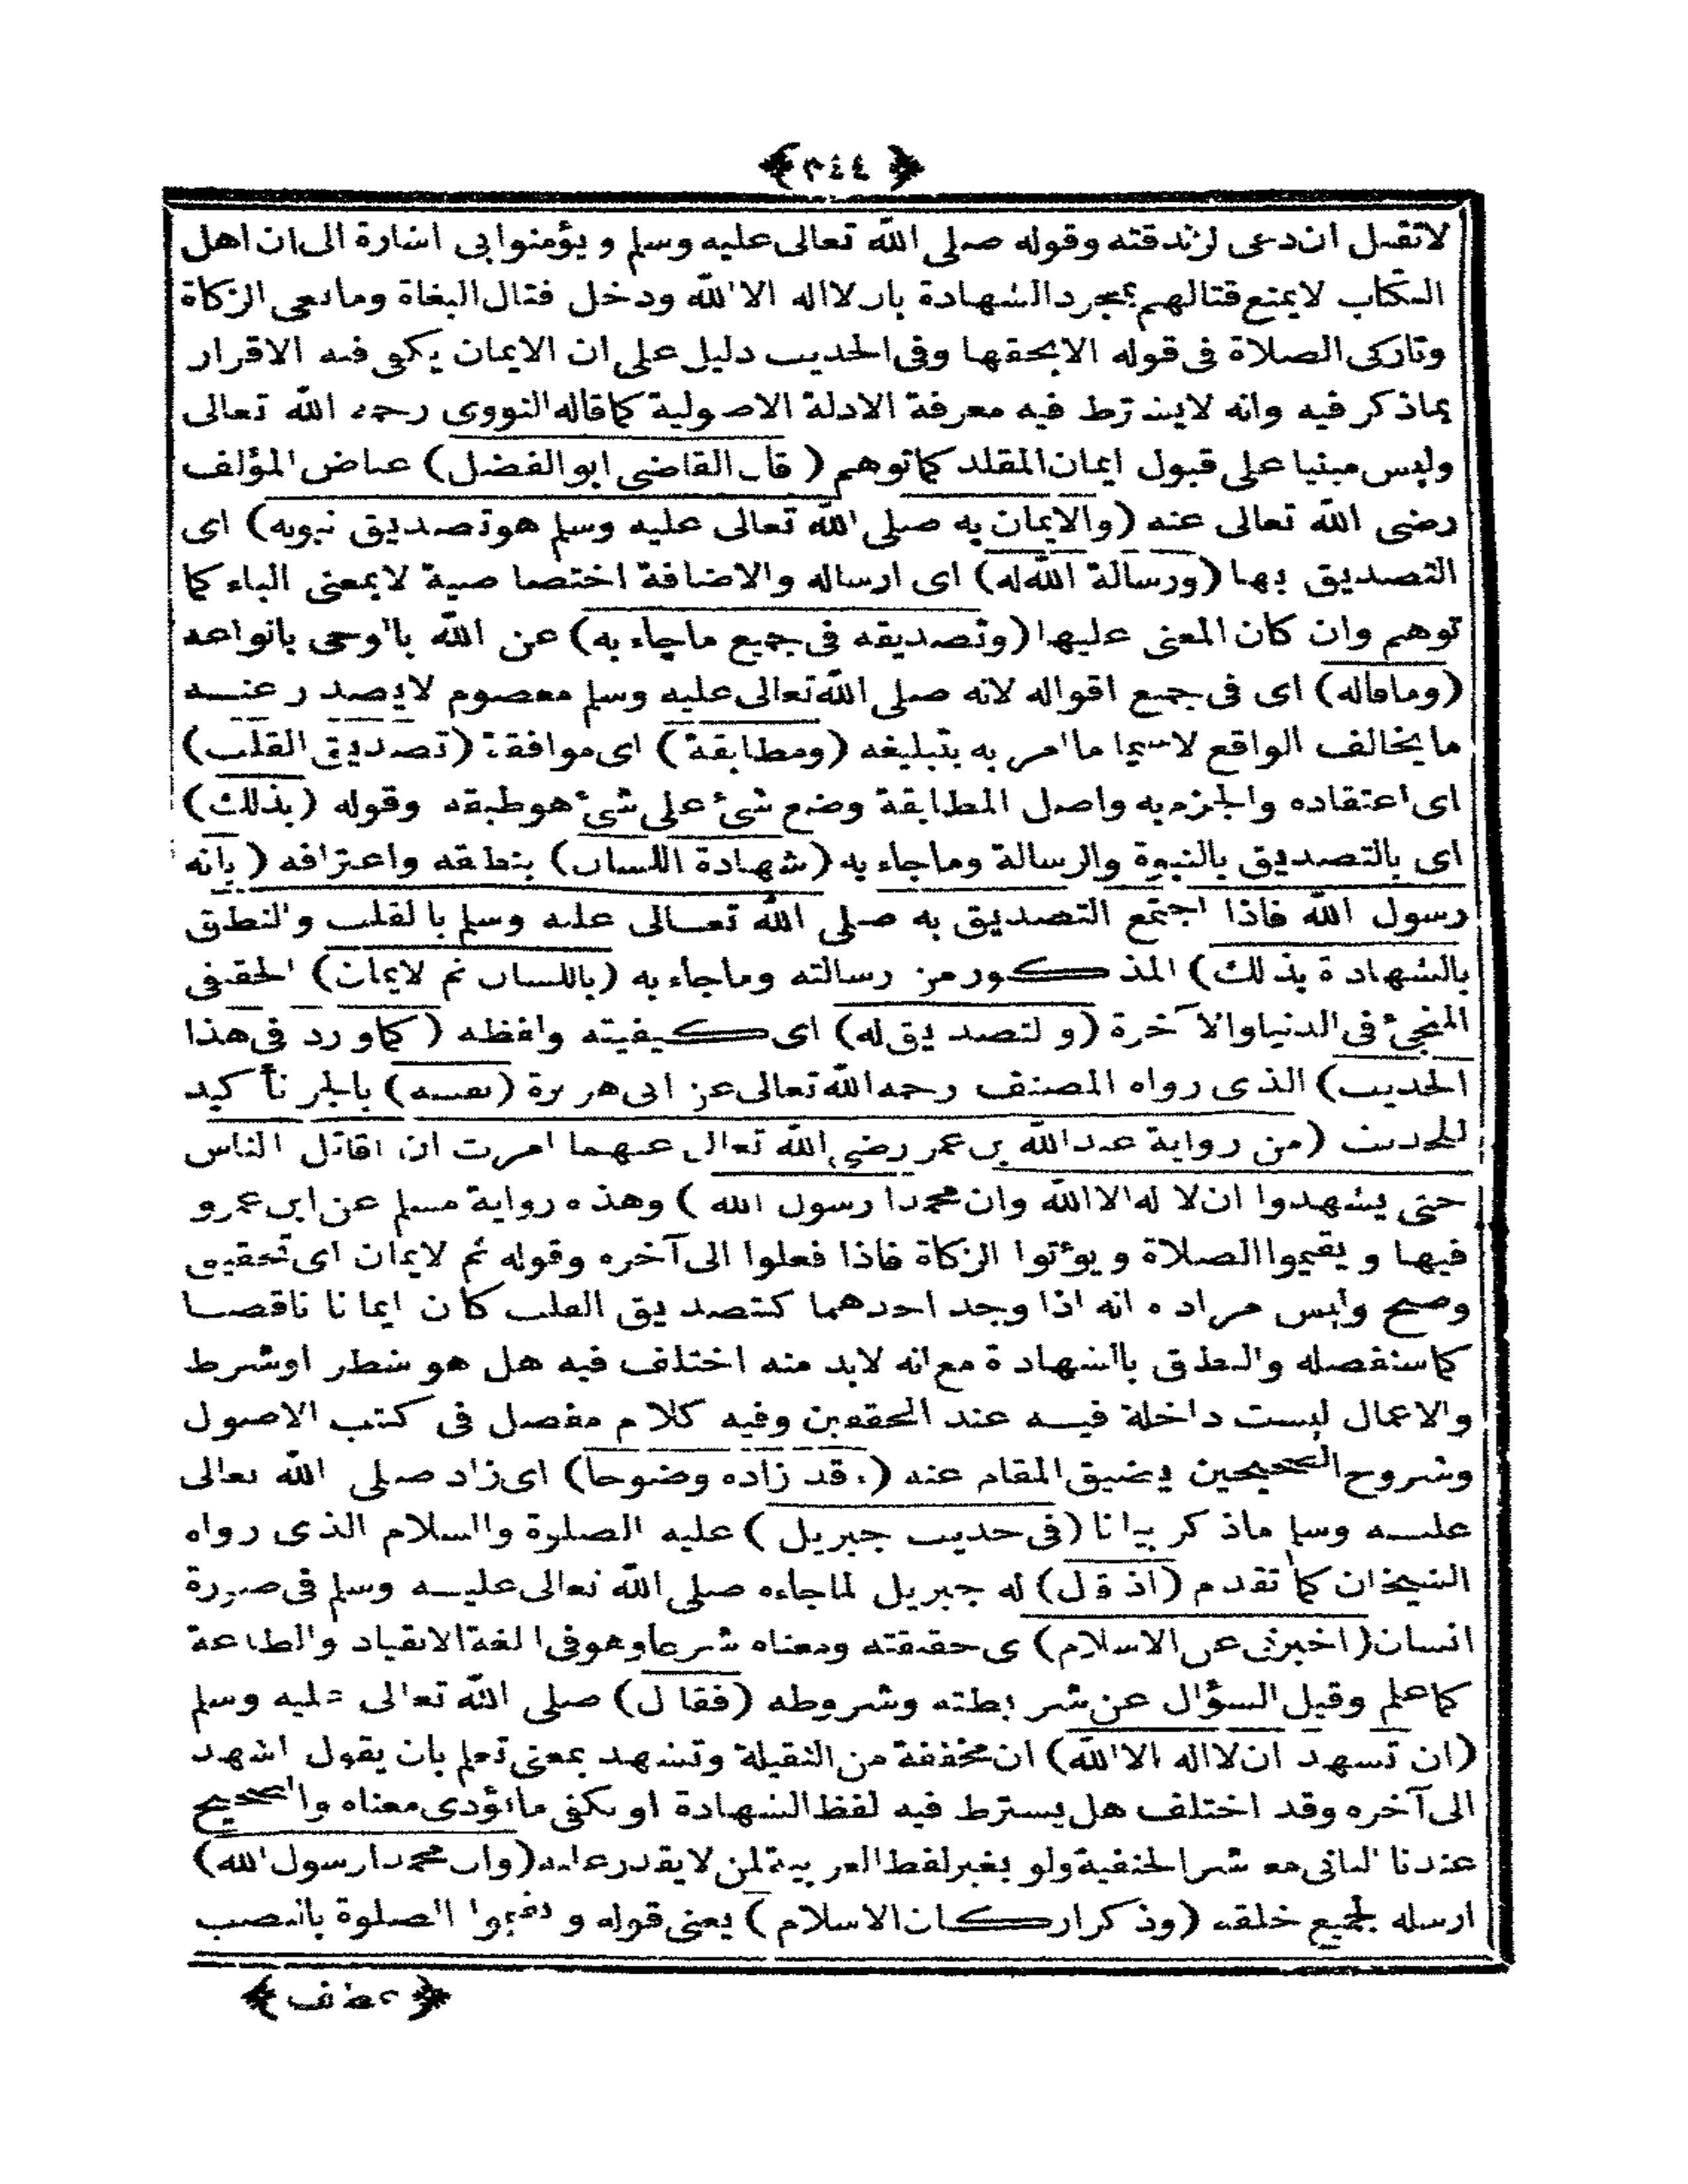 ﴿ ٣٤٤ ﴾
لاتقبل ان دعى لزندقته وقوله صلى الله تعالى عليه وسلم و يؤمنوا بى اشارة الى ان اهل
الكتاب لا يمتنع قتالهم بمجرد الشهادة بان لااله الا الله ودخل قتال البغاة ومانعى الزكاة
وتاركى الصلاة فى قوله الا بحقها وفى الحديث دليل على ان الايمان يكفى فيه الاقرار
بماذكر فيه وانه لايشترط فيه معرفة الادلة الاصولية كما قاله النووى رحمه الله تعالى
وليس مبنيا على قبول ايمان المقلد كما توهم ( قال القاضى ابو الفضل ) عياض المؤلف
رضى الله تعالى عنه (والايمان به صلى الله تعالى عليه وسلم هو تصديق نبوته) اى
التصديق بها (ورسالة الله له) اى ارساله والاضافة اختصا صية لا بمعنى الباء كما
توهم وان كان المعنى عليها (وتصديقه فى جميع ماجاء به) عن الله بالوحى بانواعه
(وماقاله) اى فى جميع اقواله لانه صلى الله تعالى عليه وسلم معصوم لايصدر عنه
ما يخالف الواقع لاسيما ما امر به بتبليغه (ومطابقة) اى موافقة (تصديق القلب)
اى اعتقاده والجزم به واصل المطابقة وضع شئ على شئ هو طبقه وقوله (بذلك)
اى بالتصديق بالنبوة والرسالة وماجاء به (شهادة اللسان) بنطقه واعترافه (بأنه
رسول الله فاذا اجتمع التصديق به صلى الله تعالى عليه وسلم بالقلب والنطق
بالشهادة بذلك) المذكور من رسالته وماجاء به (باللسان تم لايمان) الحقيقى
المنجئ فى الدنيا والآخرة (و لتصديق له) اى كيفيته ولفظه (كما ورد فى هذا
الحديث) الذى رواه المصنف رحمه الله تعالى عن ابى هريرة (نفسه) بالجر تأكيد
للحديث (من رواية عبدالله بن عمر رضى الله تعالى عنهما امرت ان اقاتل الناس
حتى يشهدوا ان لا له الا الله وان محمدا رسول الله) وهذه رواية مسلم عن ابن عمر و
فيها و يقيموا الصلاة و يوتوا الزكاة فاذا فعلوا الى آخره وقوله تم لايمان اى تحقيق
وصح وليس مراده انه اذا وجد احدهما كتصديق القلب كان ايمانا ناقصا
كما سنفصله والنطق بالشهادة مع انه لابد منه اختلف فيه هل هو شطر او شرط
والاعمال ليست داخلة فيه عند المحققين وفيه كلام مفصل فى كتب الاصول
وشروح الصحيحين يضيق المقام عنه (وقد زاده وضوحا) اى زاد صلى الله تعالى
عليه وسلم ماذكر بيانا (فى حديث جبريل) عليه الصلوة والسلام الذى رواه
الشيخان كما تقدم (اذ قال) له جبريل لما جاءه صلى الله تعالى عليه وسلم فى صورة
انسان (اخبرنى عن الاسلام) ى حقيقته ومعناه شرعا وهو فى الغة الانقياد والطاعة
كما علم وقيل السؤال عن شريطته وشروطه (فقال) صلى الله تعالى عليه وسلم
(ان تشهد ان لااله الا الله) ان مخففة من الثقيلة وتشهد بمعنى تعلم بان يقول اشهد
الى آخره وقد اختلف هل يشترط فيه لفظ الشهادة او يكفى ما يؤدى معناه والصحيح
عندنا الثانى معشر الحنفية ولو بغير لفظ العربية لمن لا يقدر عليه (وان محمدا رسول الله)
ارسله لجميع خلقه (وذكر اركان الاسلام) يعنى قوله و تقيموا الصلوة بالنصب
﴿ عطف ﴾